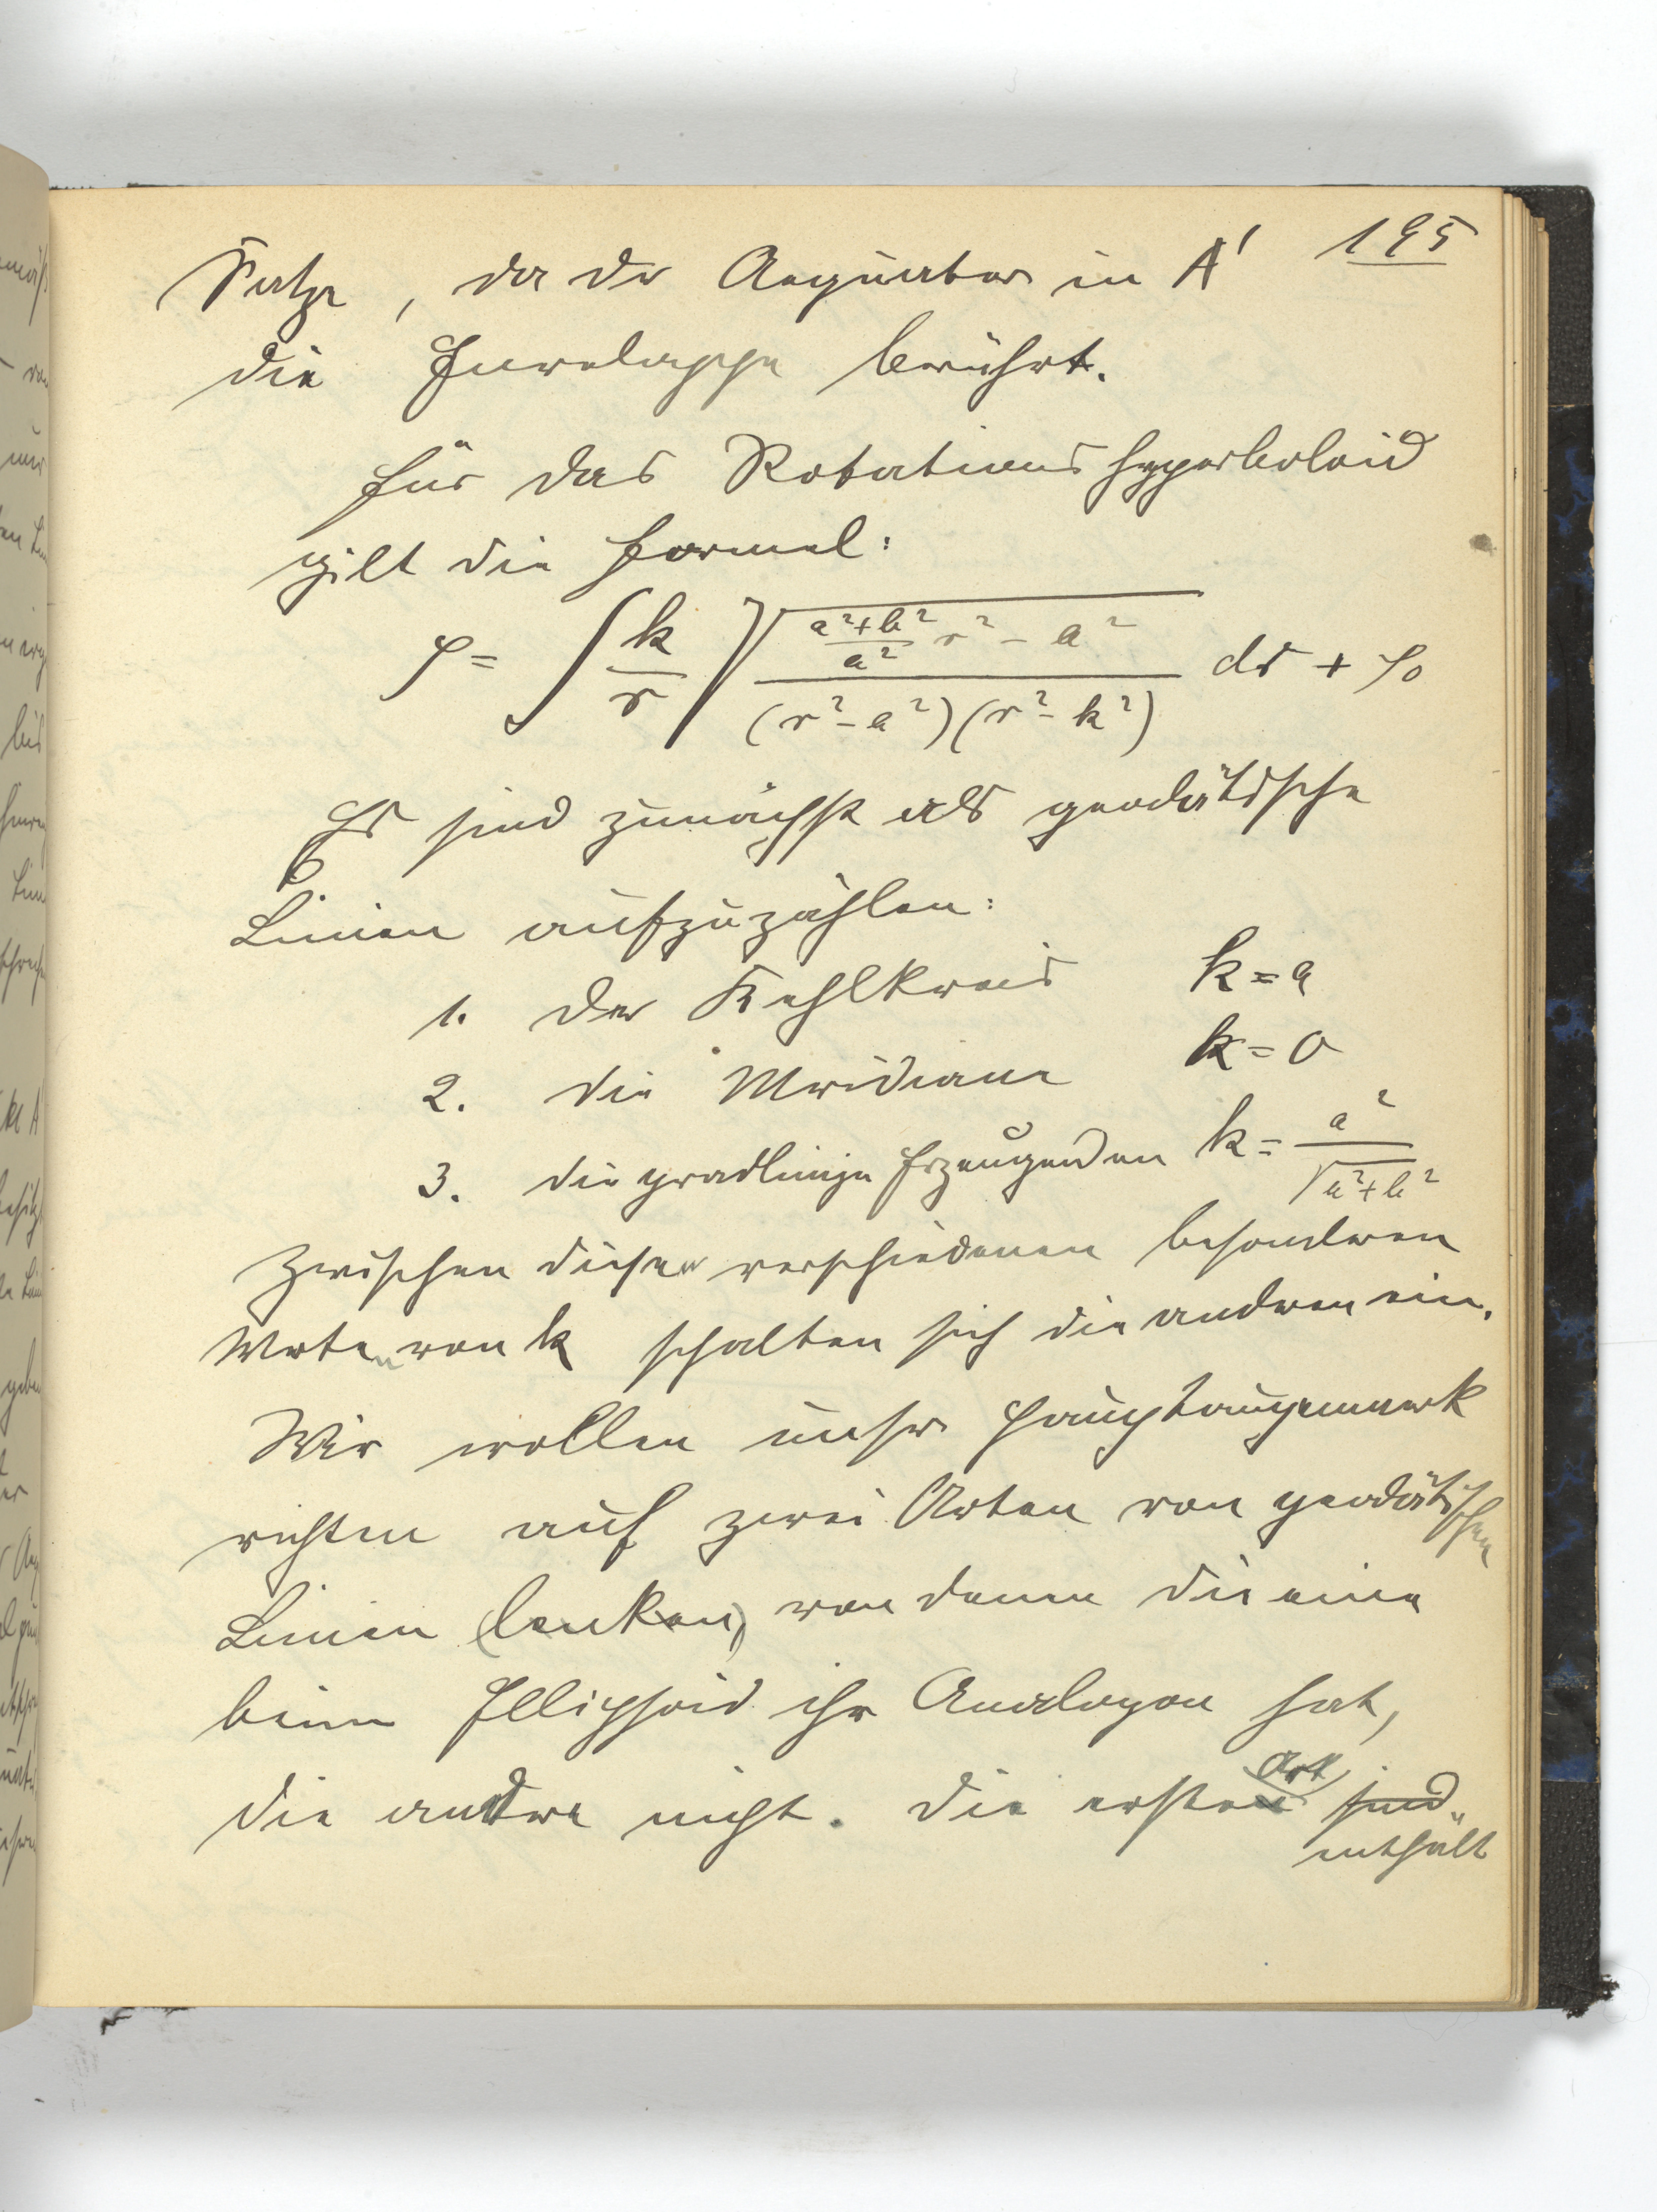 195
Satze, da der Aequator in A'
die Enveloppe berührt.
Für das Rotationshyperboloid
gilt die Formel:
φ = ∫ k/r √( ((a²+b²)/a² r² - a²) / ((r²-a²)(r²-k²)) ) dr + φ₀
Es sind zunächst als geodätische
Linien aufzuzählen:
1. der Kehlkreis k = a
2. die Meridiane k = 0
3. die gradlinige Erzeugenden k = a²/√(a²+b²)
Zwischen diesen verschiedenen besonderen
Werten von k schalten sich die anderen ein.
Wir wollen unser Hauptaugenmerk
richten auf zwei Arten von geodätischen
Linien (lenken), von denen die eine
beim Ellipsoid ihr Analogon hat,
die andere nicht. Die erste Art sind
enthält